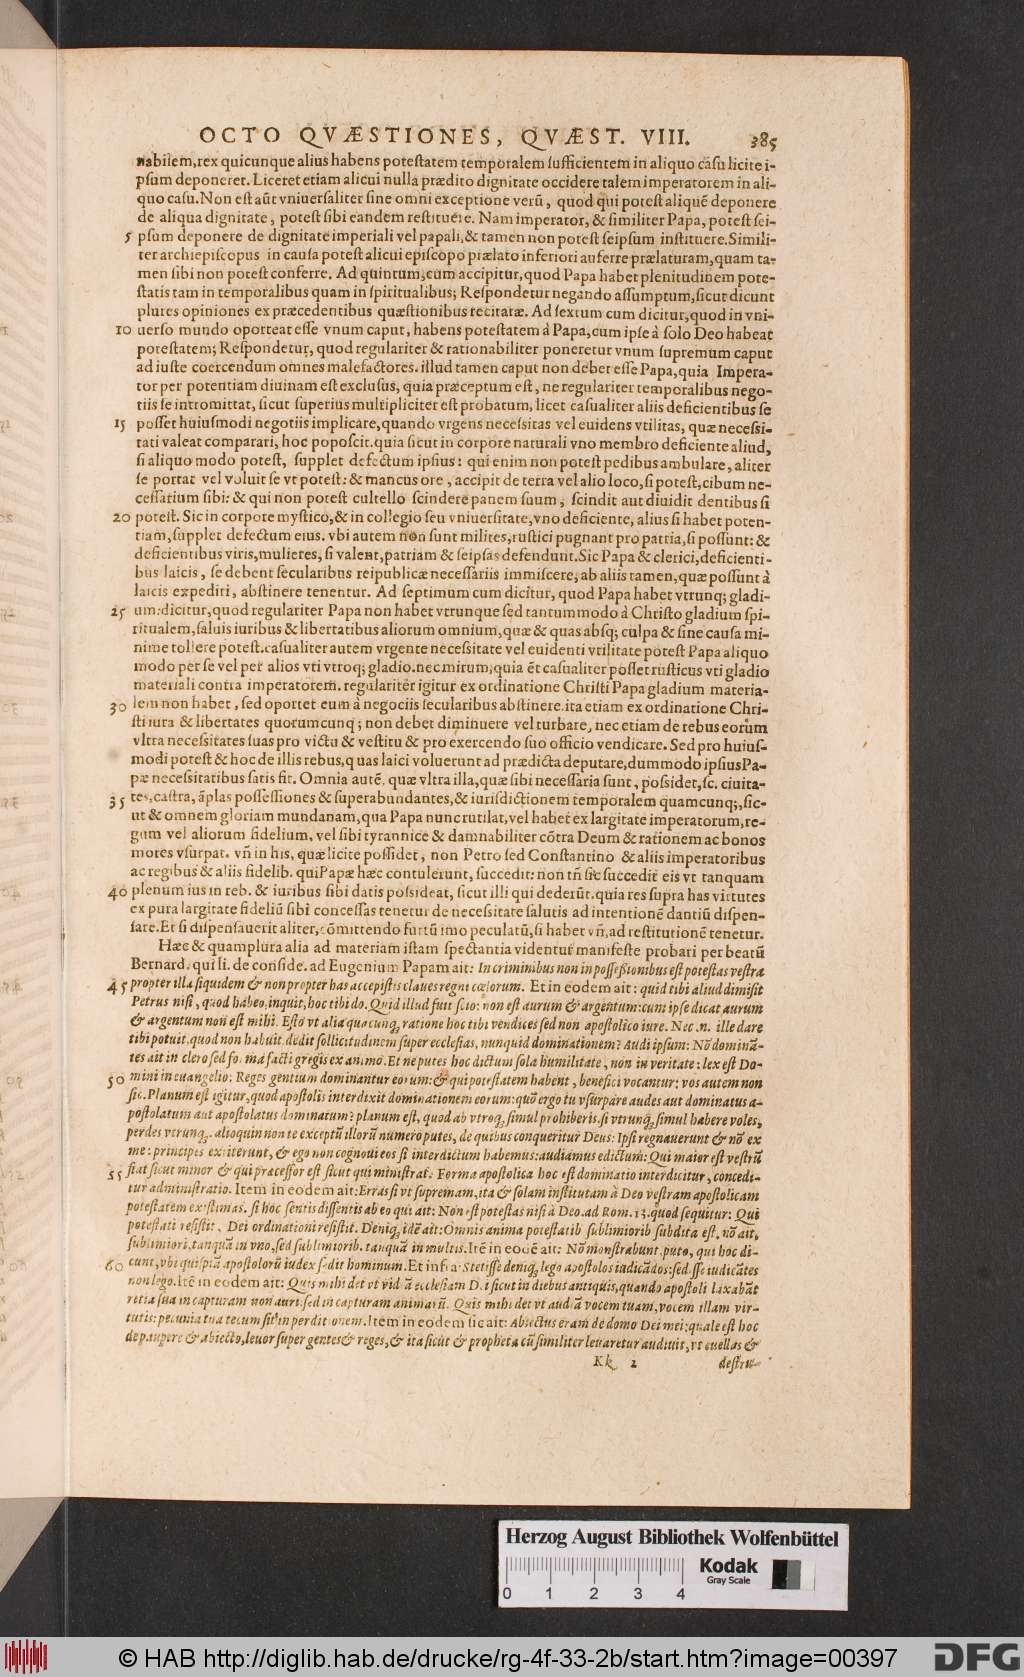 OCTO QVÆSTIONES, QVÆST. VIII. 385
nabilem, rex quicunque alius habens potestatem temporalem sufficientem in aliquo casu licite i-
psum deponeret. Liceret etiam alicui nulla prædito dignitate occidere talem imperatorem in ali-
quo casu. Non est aūt vniuersaliter sine omni exceptione verū, quod qui potest aliquē deponere
de aliqua dignitate, potest sibi eandem restituere. Nam imperator, & similiter Papa, potest sei-
5 psum deponere de dignitate imperiali vel papali, & tamen non potest seipsum instituere. Simili-
ter archiepiscopus in causa potest alicui episcopo prælato inferiori auferre prælaturam, quam ta-
men sibi non potest conferre. Ad quintum, cum accipitur, quod Papa habet plenitudinem pote-
statis tam in temporalibus quam in spiritualibus; Respondetur negando assumptum, sicut dicunt
plures opiniones ex præcedentibus quæstionibus recitatæ. Ad sextum cum dicitur, quod in vni-
10 uerso mundo oporteat esse vnum caput, habens potestatem à Papa, cum ipse à solo Deo habeat
potestatem; Respondetur, quod regulariter & rationabiliter poneretur vnum supremum caput
ad iuste coercendum omnes malefactores. illud tamen caput non debet esse Papa, quia Impera-
tor per potentiam diuinam est exclusus, quia præceptum est, ne regulariter temporalibus nego-
tiis se intromittat, sicut superius multipliciter est probatum, licet casualiter aliis deficientibus se
15 posset huiusmodi negotiis implicare, quando vrgens necessitas vel euidens vtilitas, quæ necessi-
tati valeat comparari, hoc poposcit. quia sicut in corpore naturali vno membro deficiente aliud,
si aliquo modo potest, supplet defectum ipsius: qui enim non potest pedibus ambulare, aliter
se portat vel voluit se vt potest: & mancus ore, accipit de terra vel alio loco, si potest, cibum ne-
cessarium sibi: & qui non potest cultello scindere panem suum, scindit aut diuidit dentibus si
20 potest. Sic in corpore mystico, & in collegio seu vniuersitate, vno deficiente, alius si habet poten-
tiam, supplet defectum eius. vbi autem non sunt milites, rustici pugnant pro patria, si possunt: &
deficientibus viris, mulieres, si valent, patriam & seipsas defendunt. Sic Papa & clerici, deficienti-
bus laicis, se debent secularibus reipublicæ necessariis immiscere, ab aliis tamen, quæ possunt à
laicis expediri, abstinere tenentur. Ad septimum cum dicitur, quod Papa habet vtrunq; gladi-
25 um: dicitur, quod regulariter Papa non habet vtrunque sed tantummodo à Christo gladium spi-
ritualem, saluis iuribus & libertatibus aliorum omnium, quæ & quas absq; culpa & sine causa mi-
nime tollere potest. casualiter autem vrgente necessitate vel euidenti vtilitate potest Papa aliquo
modo per se vel per alios vti vtroq; gladio. nec mirum, quia ēt casualiter posset rusticus vti gladio
materiali contra imperatorem. regulariter igitur ex ordinatione Christi Papa gladium materia-
30 lem non habet, sed oportet eum à negociis secularibus abstinere. ita etiam ex ordinatione Chri-
sti iura & libertates quorumcunq; non debet diminuere vel turbare, nec etiam de rebus eorum
vltra necessitates suas pro victu & vestitu & pro exercendo suo officio vendicare. Sed pro huius-
modi potest & hoc de illis rebus, quas laici voluerunt ad prædicta deputare, dummodo ipsius Pa-
pæ necessitatibus satis fit. Omnia autē. quæ vltra illa, quæ sibi necessaria sunt, possidet, sc. ciuita-
35 tes, castra, āplas possessiones & superabundantes, & iurisdictionem temporalem quamcunq;, sic-
ut & omnem gloriam mundanam, qua Papa nunc rutilat, vel habet ex largitate imperatorum, re-
gum vel aliorum fidelium, vel sibi tyrannice & damnabiliter cōtra Deum & rationem ac bonos
mores vsurpat. vñ in his, quæ licite possidet, non Petro sed Constantino & aliis imperatoribus
ac regibus & aliis fidelib. qui Papæ hæc contulerunt, succedit: non tñ sic succedit eis vt tanquam
40 plenum ius in reb. & iuribus sibi datis possideat, sicut illi qui dederūt. quia res supra has virtutes
ex pura largitate fideliū sibi concessas tenetur de necessitate salutis ad intentionē dantiū dispen-
sare. Et si dispensauerit aliter, cōmittendo furtū imo peculatū, si habet vñ, ad restitutionē tenetur.
Hæc & quamplura alia ad materiam istam spectantia videntur manifeste probari per beatū
Bernard. qui li. de conside. ad Eugenium Papam ait: In criminibus non in possessionibus est potestas vestra
45 propter illa siquidem & non propter has accepistis claues regni cœlorum. Et in eodem ait: quid tibi aliud dimisit
Petrus nisi, quod habeo, inquit, hoc tibi do. Quid illud fuit scio: non est aurum & argentum: cum ipse dicat aurum
& argentum non est mihi. Esto vt alia quacunq; ratione hoc tibi vendices sed non apostolico iure. Nec .n. ille dare
tibi potuit. quod non habuit. dedit sollicitudinem super ecclesias, nunquid dominationem? Audi ipsum: Nō dominā-
tes ait in clero sed fo. ma facti gregis ex animo. Et ne putes hoc dictum sola humilitate, non in veritate: lex est Do-
50 mini in euangelio: Reges gentium dominantur eorum: & qui potestatem habent, benefici vocantur: vos autem non
sic. Planum est igitur, quod apostolis interdixit dominationem eorum: quō ergo tu vsurpare audes aut dominatus a-
postolatum aut apostolatus dominatum? planum est, quod ab vtroq; simul prohiberis. si vtrunq; simul habere voles,
perdes vtrunq;. alioquin non te exceptū illorū numero putes, de quibus conqueritur Deus: Ipsi regnauerunt & nō ex
me: principes extiterunt, & ego non cognoui eos si interdictum habemus: audiamus edictum: Qui maior est vestrū
55 fiat sicut minor & qui præcessor est sicut qui ministrat: Forma apostolica hoc est dominatio interdicitur, concedi-
tur administratio. Item in eodem ait: Erras si vt supremam, ita & solam institutam à Deo vestram apostolicam
potestatem existimas. si hoc sentis dissentis ab eo qui ait: Non est potestas nisi à Deo. ad Rom. 13. quod sequitur: Qui
potestati resistit, Dei ordinationi resistit. Deniq; idē ait: Omnis anima potestatib sublimiorib subdita est, nō ait,
sublimiori, tanquā in vno, sed sublimiorib. tanquā in multis. Itē in eodē ait: Nō monstrabunt, puto, qui hoc di-
60 cunt, vbi quispiā apostolorū iudex sedit hominum. Et infra: Stetisse deniq; lego apostolos iudicādos: sedisse iudicātes
non lego. Itē in eodem ait: Quis mihi det vt vidēā ecclesiam Dei sicut in diebus antiquis, quando apostoli laxabāt
retia sua in capturam non auri: sed in capturam animarū. Quis mihi det vt audiā vocem tuam, vocem illam vir-
tutis: pecunia tua tecum sit in perditionem. Item in eodem sic ait: Abiectus eram de domo Dei mei: quale est hoc
de paupere & abiecto, leuor super gentes & reges, & ita sicut & propheta cū similiter leuaretur audiuit, vt euellas &
Kk 2 destru-
Herzog August Bibliothek Wolfenbüttel
0 1 2 3 4
Kodak
Gray Scale
© HAB http://diglib.hab.de/drucke/rg-4f-33-2b/start.htm?image=00397
DFG